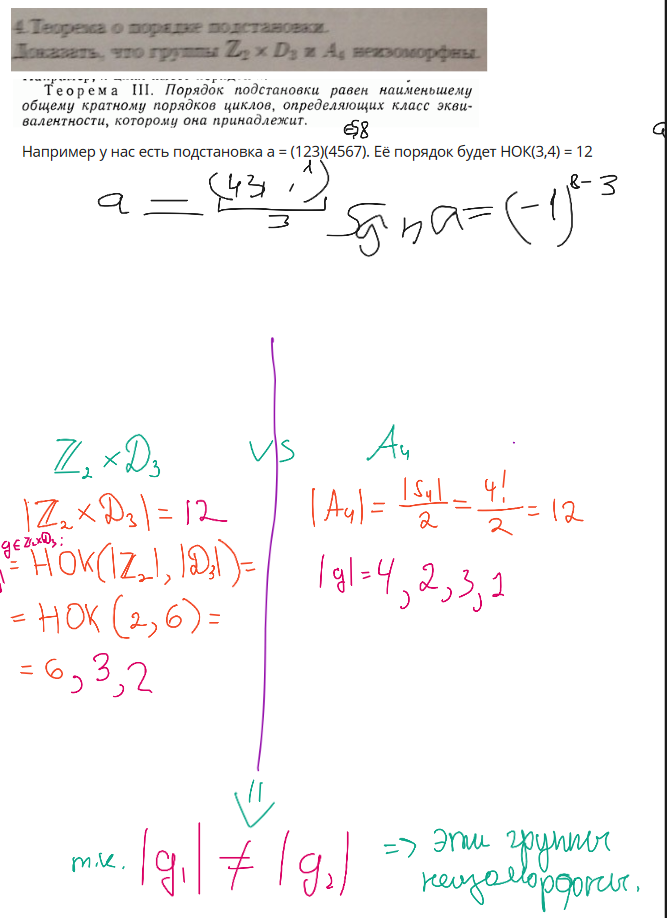 4. Теорема о порядке подстановки.
Доказать, что группы Z₂ × D₃ и A₄ неизоморфны.
Теорема III. Порядок подстановки равен наименьшему
общему кратному порядков циклов, определяющих класс экви-
валентности, которому она принадлежит.
Например у нас есть подстановка a = (123)(4567). Её порядок будет НОК(3,4) = 12
a = 3 sgn a = (-1)⁸⁻³
Z₂ × D₃ VS A₄
|Z₂ × D₃| = 12
|A₄| = |S₄|/2 = 4!/2 = 12
g ∈ Z₂×D₃:
= НОК(|Z₂|, |D₃|) =
|g| = 4, 2, 3, 1
= НОК(2, 6) =
= 6, 3, 2
т.к. |g₁| ≠ |g₂| => эти группы
неизоморфны.